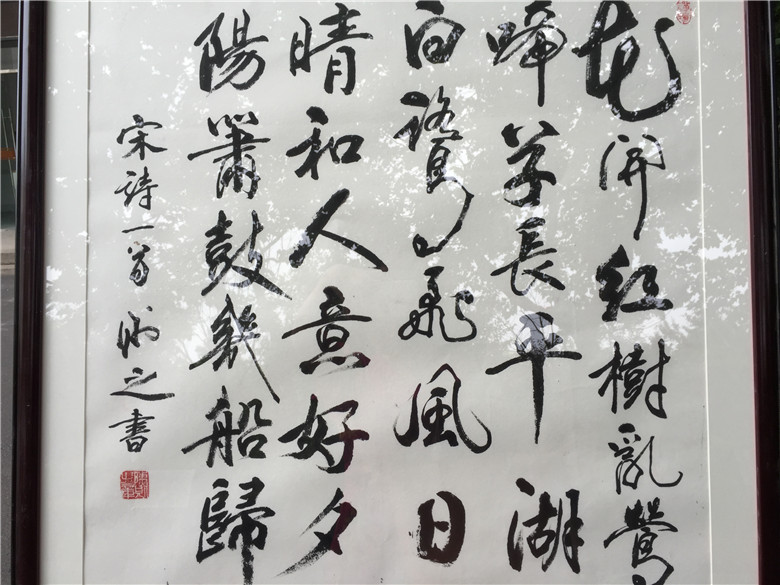 花開紅樹亂鶯
啼草長平湖
白鷺飛風日
晴和人意好夕
陽簫鼓幾船歸
宋詩一首 之書